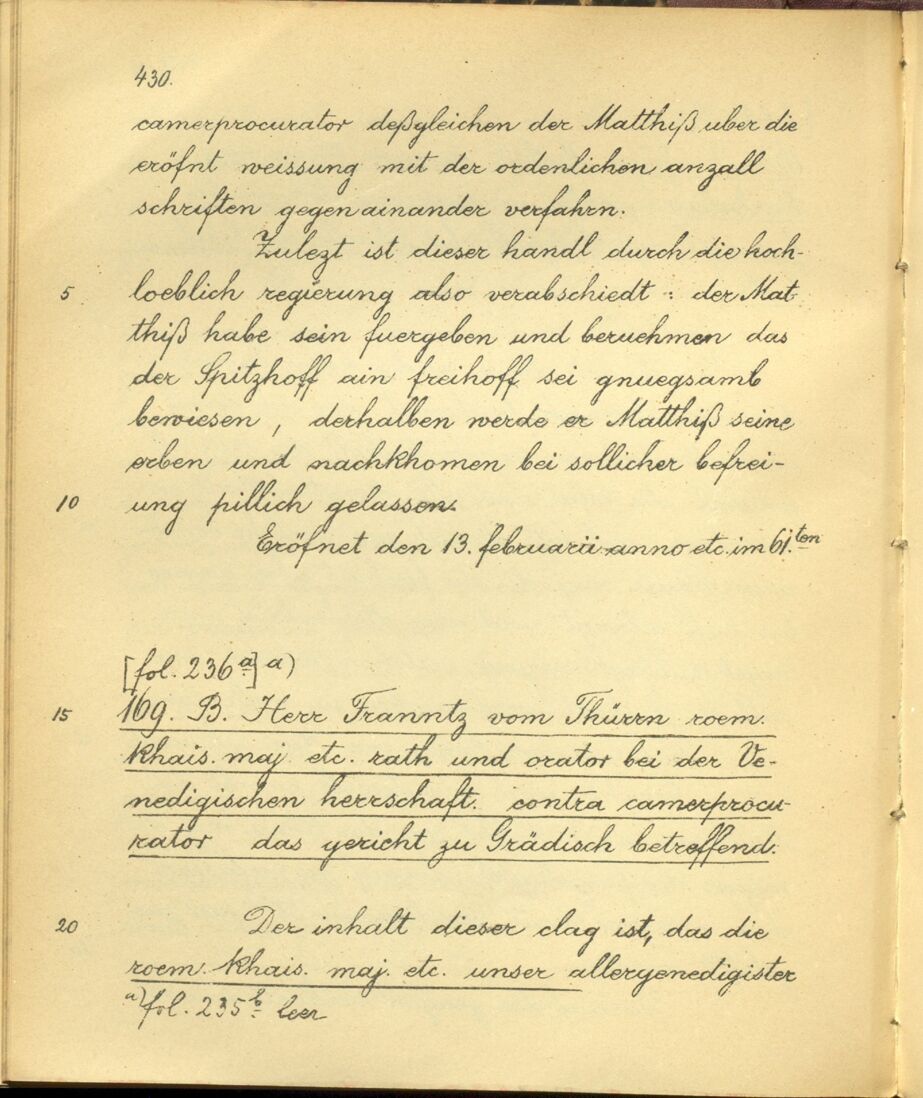 430.
camerprocurator deßgleichen der Matthiß uber die
eröfnt weissung mit der ordenlichen anzall
schriften gegen ainander verfahrn.
Zulezt ist dieser handl durch die hoch-
5 loeblich regierung also verabschiedt : der Mat
thiß habe sein fuergeben und beruehmen das
der Spitzhoff ain freihoff sei gnuegsamb
bewiesen, derhalben werde er Matthiß seine
erben und nachkhomen bei sollicher befrei-
10 ung pillich gelassen.
Eröfnet den 13. februarii anno etc. im 61.ten
[fol. 236a] a)
15 169. B. Herr Franntz vom Thürrn roem.
khais. maj etc. rath und orator bei der Ve-
nedigischen herrschaft. contra camerprocu-
rator das gericht zu Grädisch betreffend.
20 Der inhalt dieser clag ist, das die
roem. khais. maj. etc. unser allergenedigister
a) fol. 235b leer